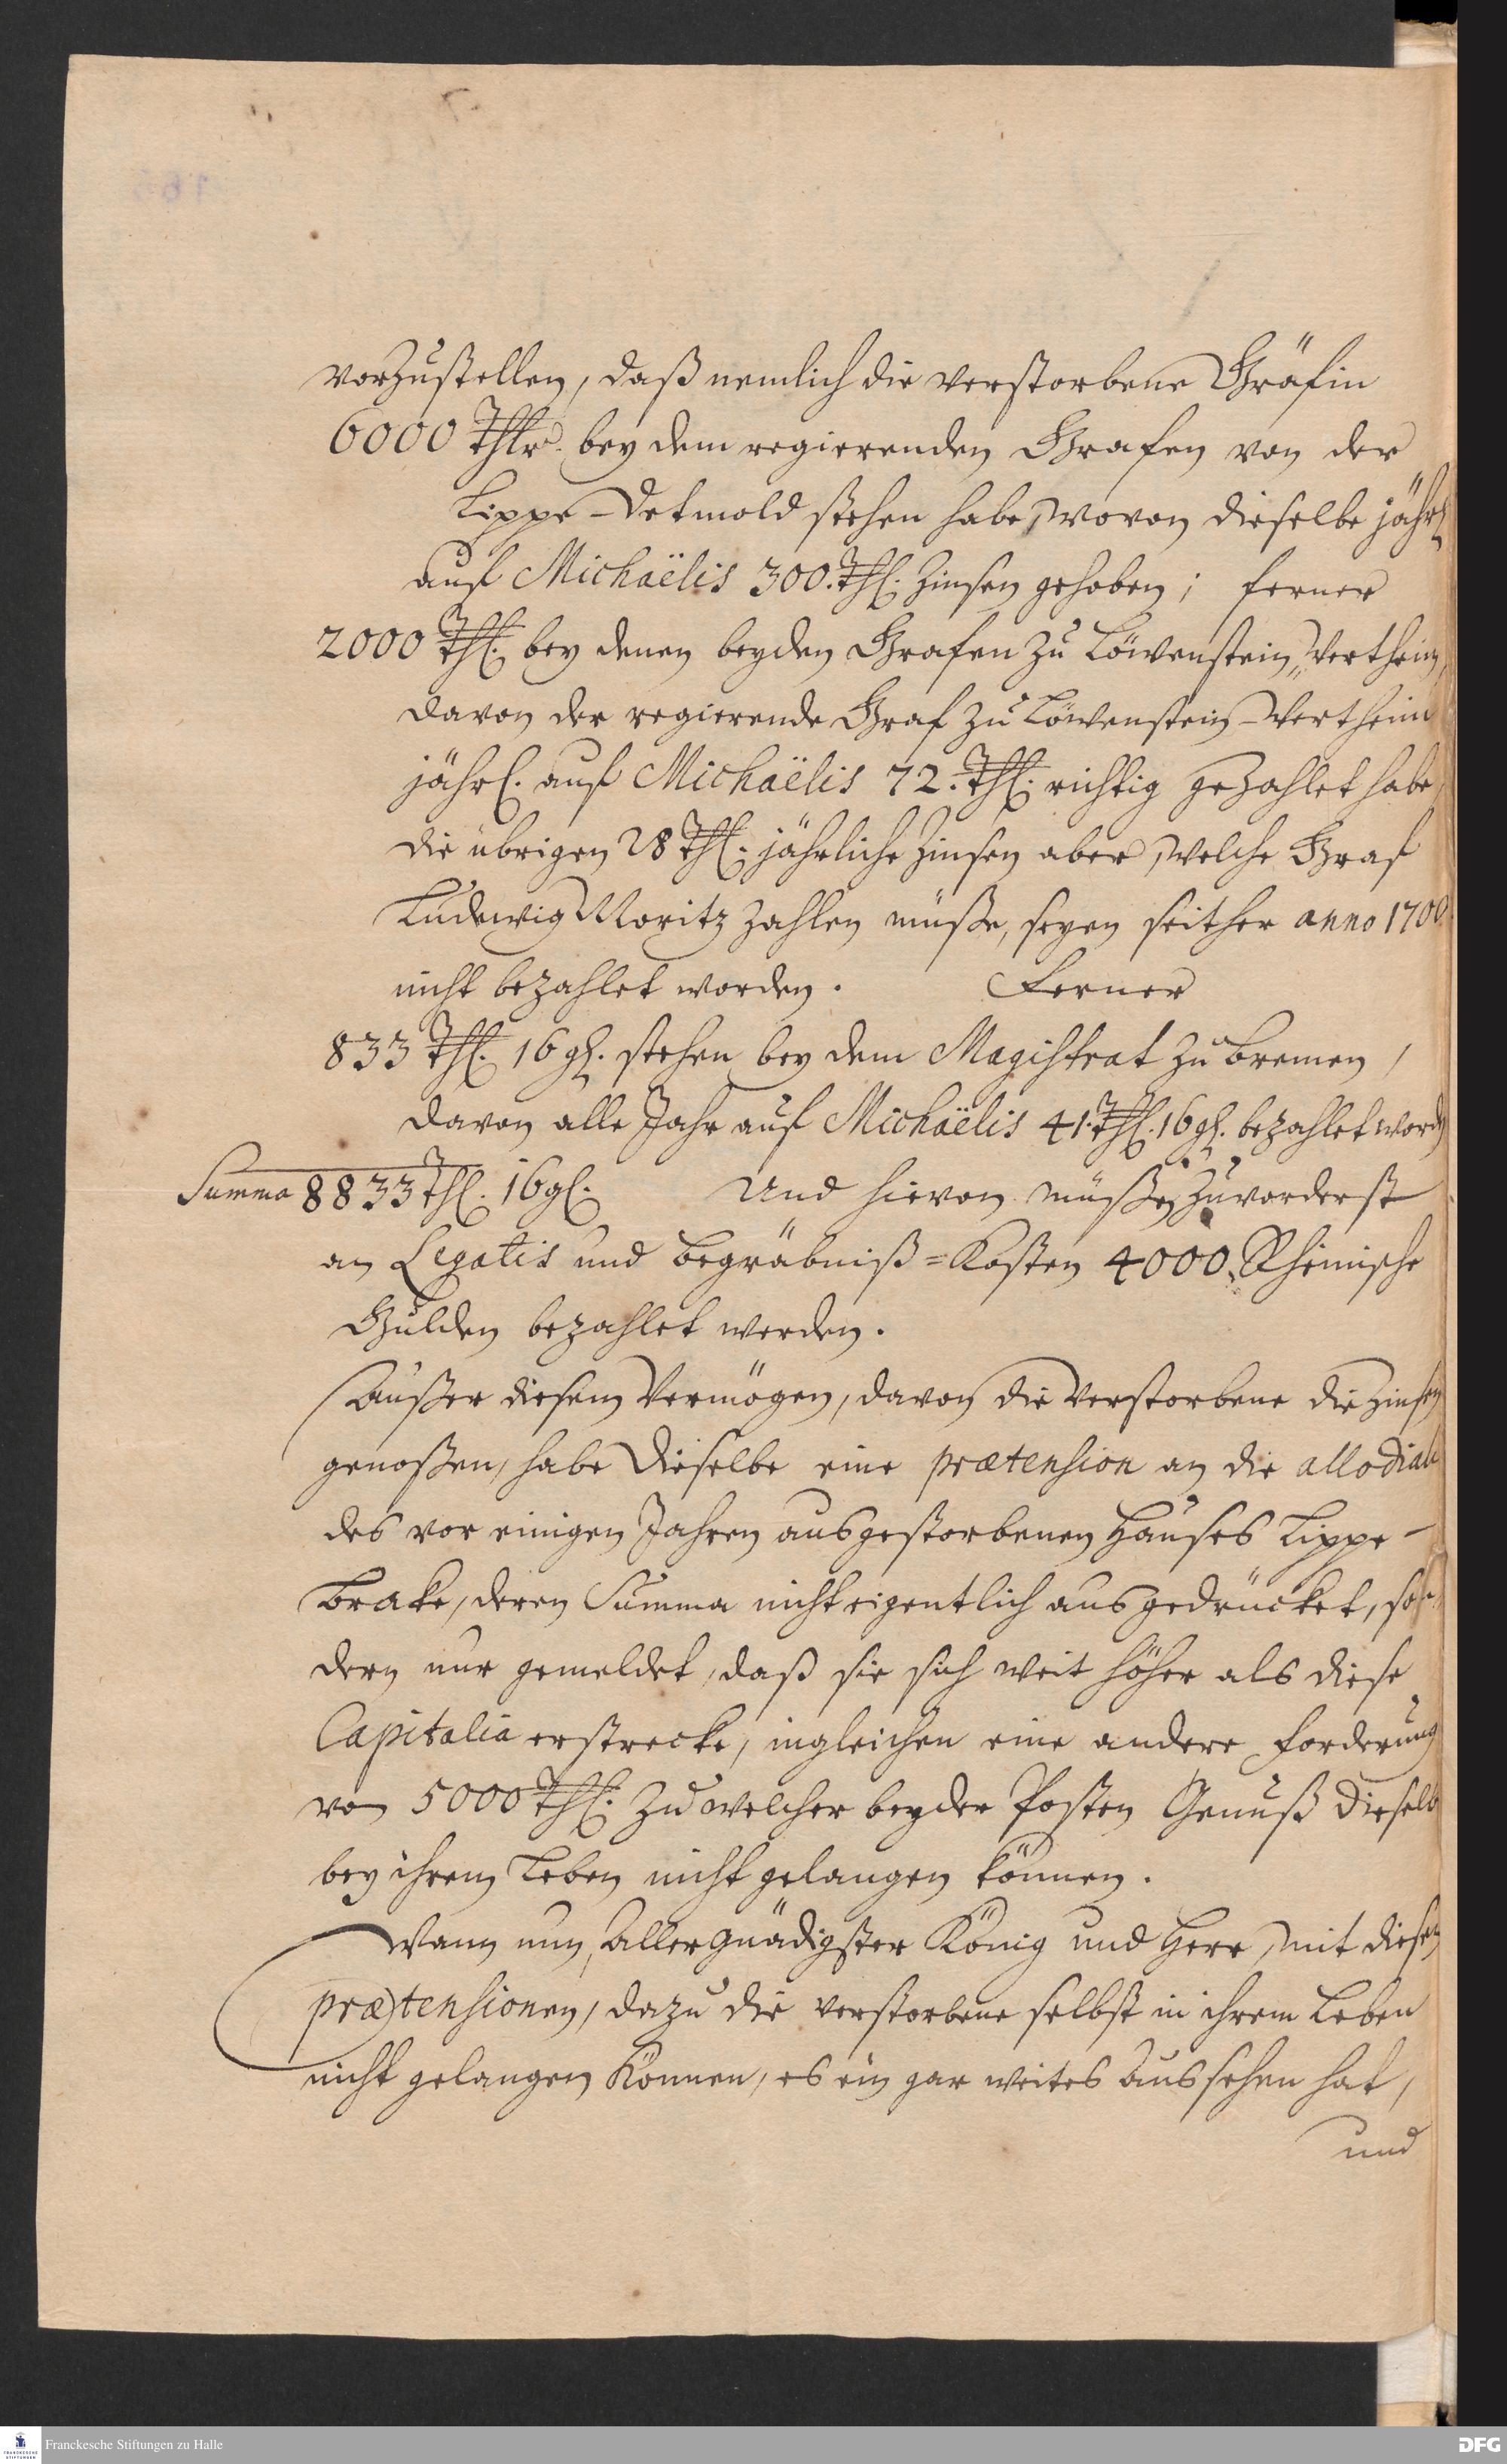 vorzustellen, daß nemlich die verstorbene Gräfin
6000 Thlr. bey dem regierenden Grafen von der
Lippe-Detmold stehen habe, wovon dieselbe jährl.
auf Michaëlis 300. Thl. Zinsen gehoben; ferner
2000 Thl. bey denen beyden Grafen zu Löwenstein-Wertheim,
davon der regierende Graf zu Löwenstein-Wertheim
jährl. auf Michaëlis 72. Thl. richtig gezahlet habe,
die übrigen 28 Thl. jährliche Zinsen aber, welche Graf
Ludewig Moritz zahlen müße, seyen seither anno 1700.
nicht bezahlet worden. Ferner
833 Thl. 16 gl. stehen bey dem Magistrat zu Bremen,
davon alle Jahr auf Michaëlis 41. Thl. 16 gl. bezahlet word
Summa 8833 Thl. 16 gl. Und hievon müßen zuvorderst
an Legatis und Begräbniß-Kosten 4000. Rheinische
Gulden bezahlet werden.
Außer diesem Vermögen, davon die Verstorbene die Zinsen
genoßen, habe dieselbe eine prætension an die allodial
des vor einigen Jahren ausgestorbenen Hauses Lippe-
Brake, deren Summa nicht eigentlich ausgedrücket, son-
dern nur gemeldet, daß sie sich weit höher als diese
Capitalia erstrecke, ingleichen eine andere Forderung
von 5000 Thl. zu welcher beyder Posten Genuß dieselb
bey ihrem Leben nicht gelangen können.
Wann nun, Allergnädigster König und Herr, mit diesen
prætensionen, dazu die verstorbene selbst in ihrem Leben
nicht gelangen können, es ein gar weites Aussehen hat,
und
Franckesche Stiftungen zu Halle
DFG